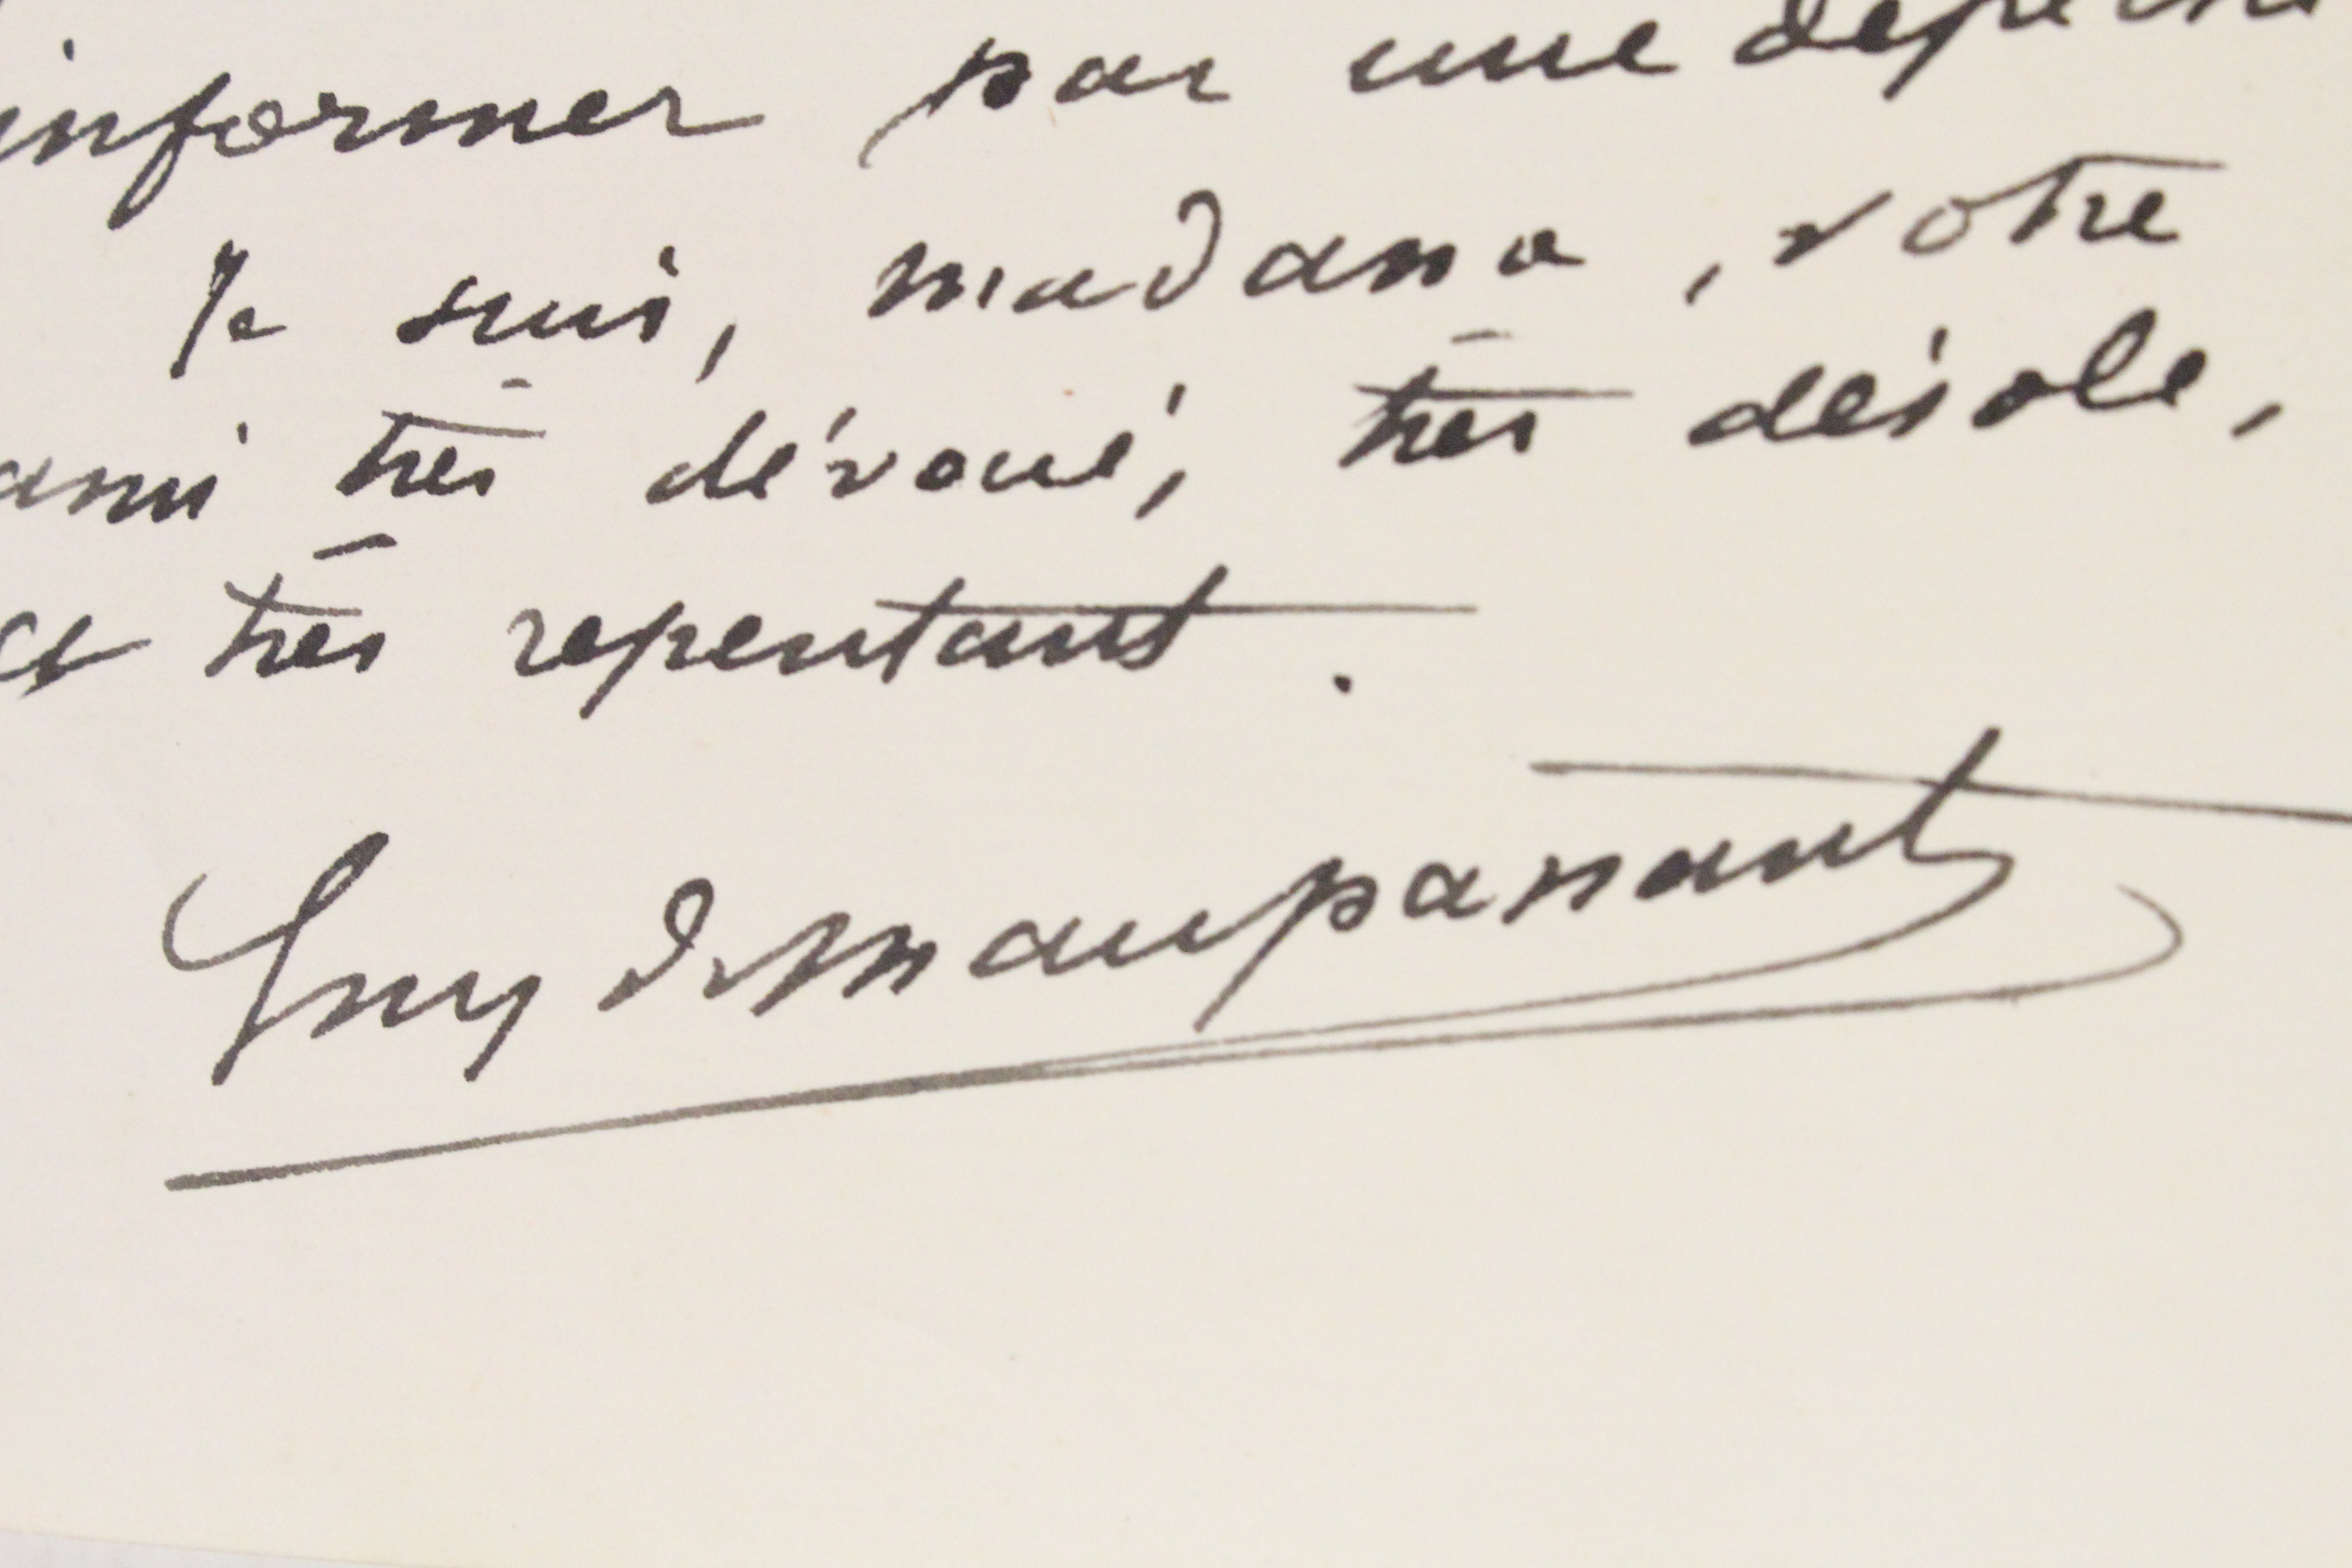 informer par une dépêche
Je suis, madame, votre
ami très dévoué, très désolé,
et très repentant.
Guy de Maupassant